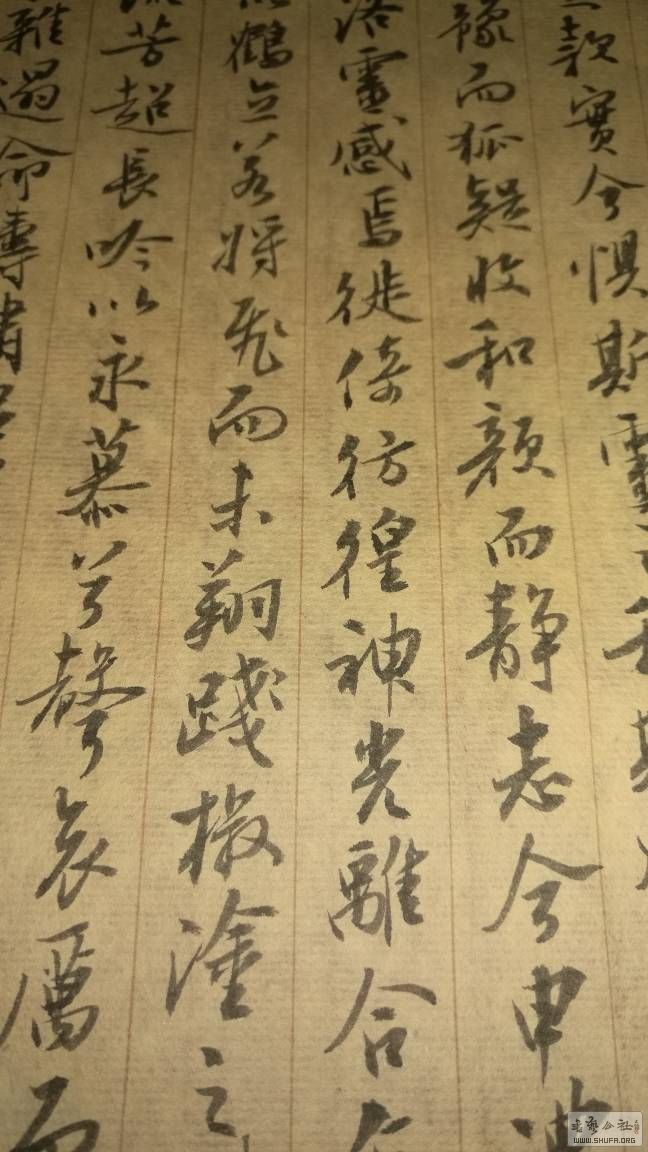 款實兮懼斯靈
豫而狐疑收和顏而靜志兮申
洛靈感焉徙倚彷徨神光離合乍
鶴立若將飛而未翔踐椒塗之
芳超長吟以永慕兮聲哀厲而
雜遝命儔嘯
书艺公社
WWW.SHUFA.ORG